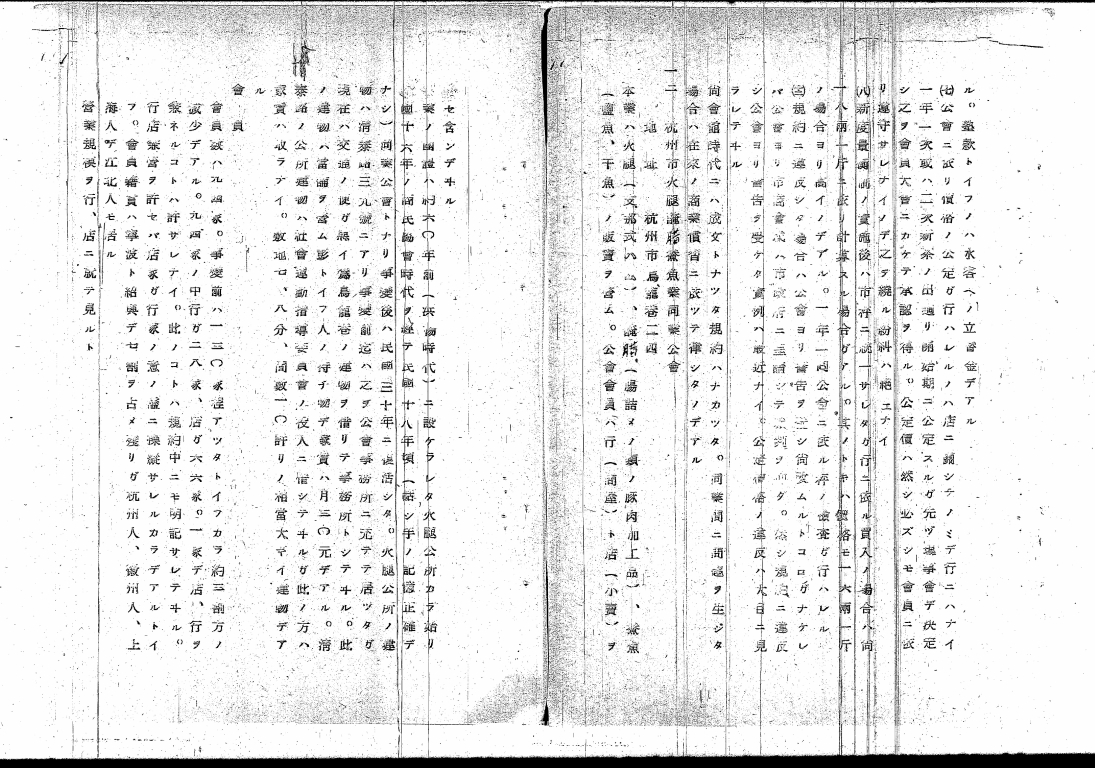 ル。墊款トイフノハ水客ヘノ立替金デアル
(七)公會ニ依リ價格ノ公定ガ行ハレルノハ店ニ關シテノミデ行ニハナイ
一年一次或ハ二次新茶ノ出廻リ開始期ニ公定スルガ先ヅ理事會デ決定
シ之ヲ會員大會ニカケテ承認ヲ得ル。公定價ハ然シ必ズシモ會員ニ依
リ遵守サレナイノデ之ヲ繞ル紛糾ハ絶エナイ
(八)新度量衡制ノ實施後ハ市秤ニ統一サレタガ行ニ依ル買入ノ場合ハ尚
一八兩一斤ニ依リ計算スル場合ガアル。其ノトキハ價格モ一六兩一斤
ノ場合ヨリ高イノデアル。一年一回公會ニ依ル秤ノ檢査ガ行ハレル
規約ニ違反シタ場合ハ公會ヨリ警告ヲ發シ尚改ムルトコロガナケレ
バ公會ヨリ市商會或ハ市政府ニ 然シ規約ニ違反
シ公會ヨリ警告ヲ受ケタ實例ハ最近ナイ。公定價格ノ違反ハ大目ニ見
ラレテヰル
尚會館時代ニハ成文トナツタ規約ハナカツタ。同業間ニ問題ヲ生ジタ
場合ハ在來ノ商業慣習ニ依ツテ律シタノデアル
一二、杭州市火腿醃腊鯗魚業同業公會
地址 杭州市馬龍巷二四
本業ハ火腿(支那式ハム)、醃腊(腸詰メノ類ノ豚肉加工品)、鯗魚
(鹽魚、干魚)ノ販賣ヲ營ム。公會會員ハ行(問屋)ト店(小賣)ヲ
モ含ンデヰル
業ノ團體ハ約六〇年前(洪楊時代)ニ設ケラレタ火腿公所カラ始リ
民國十六年ノ商民協會時代ヲ經テ民國十八年頃(話シ手ノ記憶正確デ
ナシ)同業公會トナリ事變後ハ民國三十年ニ復活シタ。火腿公所ノ建
物ハ清泰路三元號ニアリ事變前迄ハ之ヲ公會事務所ニ充テテ居ツタガ
現在ハ交通ノ便ガ惡イ爲馬龍巷ノ建物ヲ借リテ事務所トシテヰル。此
ノ建物ハ當舖ヲ營ム彭トイフ人ノ持チ物デ家賃ハ月三〇元デアル。清
泰路ノ公所建物ハ社會運動指導委員會ノ役人ニ借シテヰルガ此ノ方ハ
家賃ハ取ラナイ。敷地七、八分、間數一〇許リノ相當大キイ建物デア
ル
會員
會員數ハ九四家。事變前ハ一三〇家程アツタトイフカラ約三割方ノ
減少デアル。九四家ノ中行ガ二八家、店ガ六六家。一家デ店、行ヲ
兼ネルコトハ許サレナイ。此ノコトハ規約中ニモ明記サレテヰル。
行店兼營ヲ許セバ店家ガ行家ノ意ノ儘ニ操縱サレルカラデアルトイ
フ。會員籍貫ハ寧波ト紹興デ七割ヲ占メ殘リガ杭州人、徽州人、上
海人デ江北人モ居ル
營業規模ヲ行、店ニ就テ見ルト